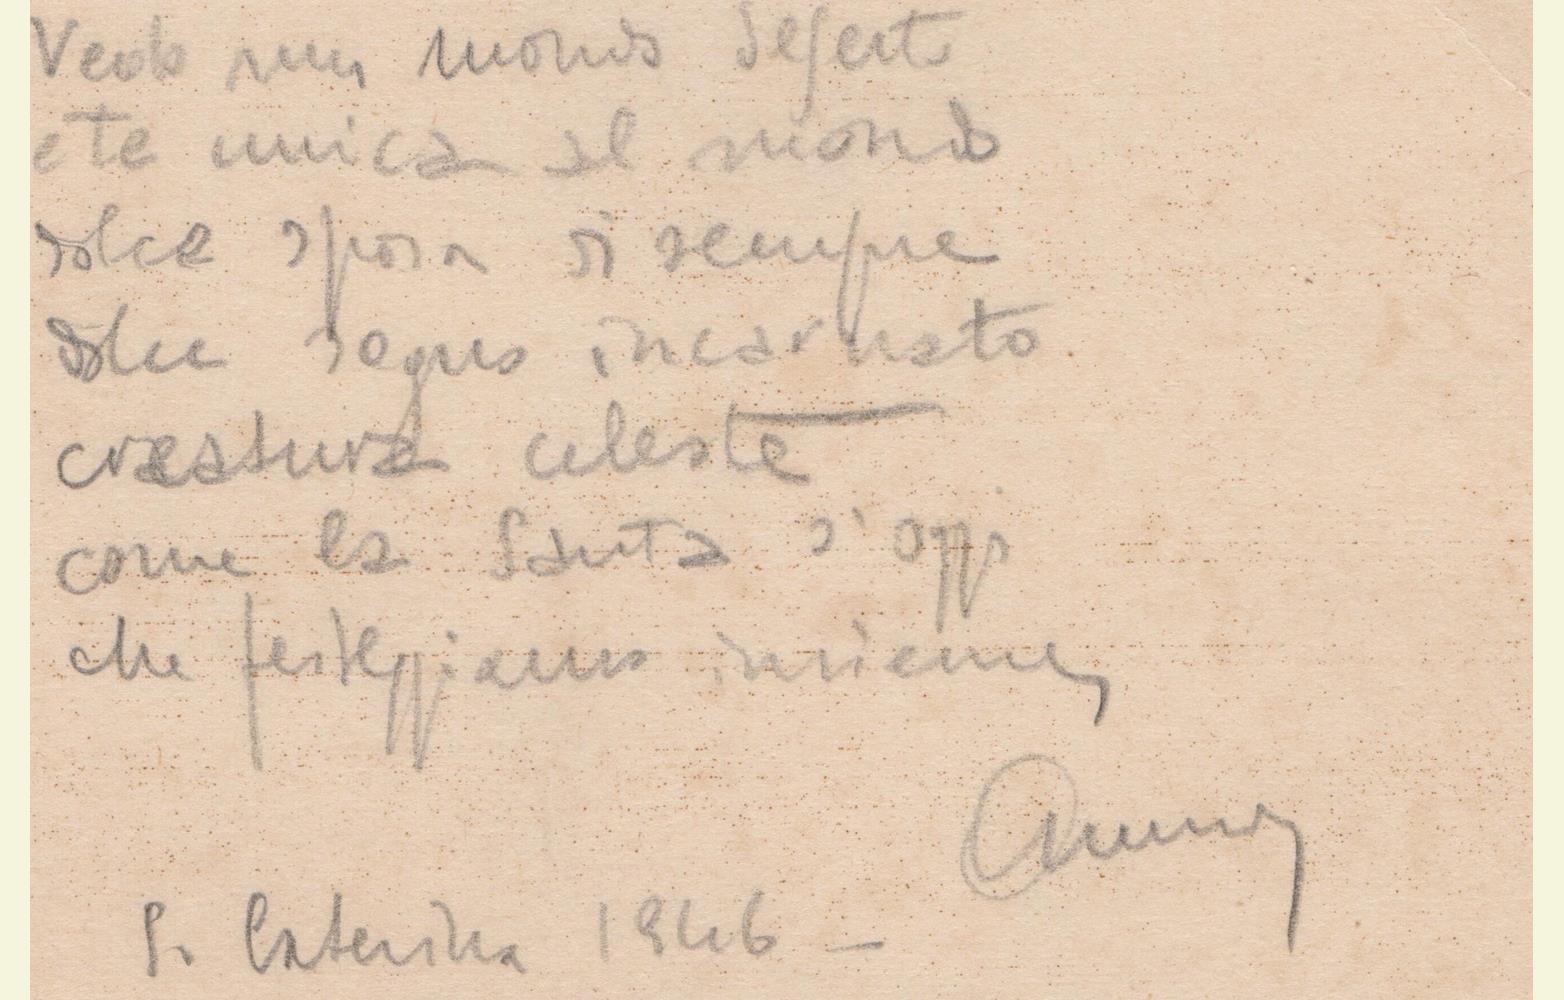 Vedo un mondo deserto
e te unica al mondo
dolce sposa di sempre
dolce sogno incarnato
creatura celeste
come la Santa d'oggi
che festeggiamo insieme
S. Caterina 1946 —